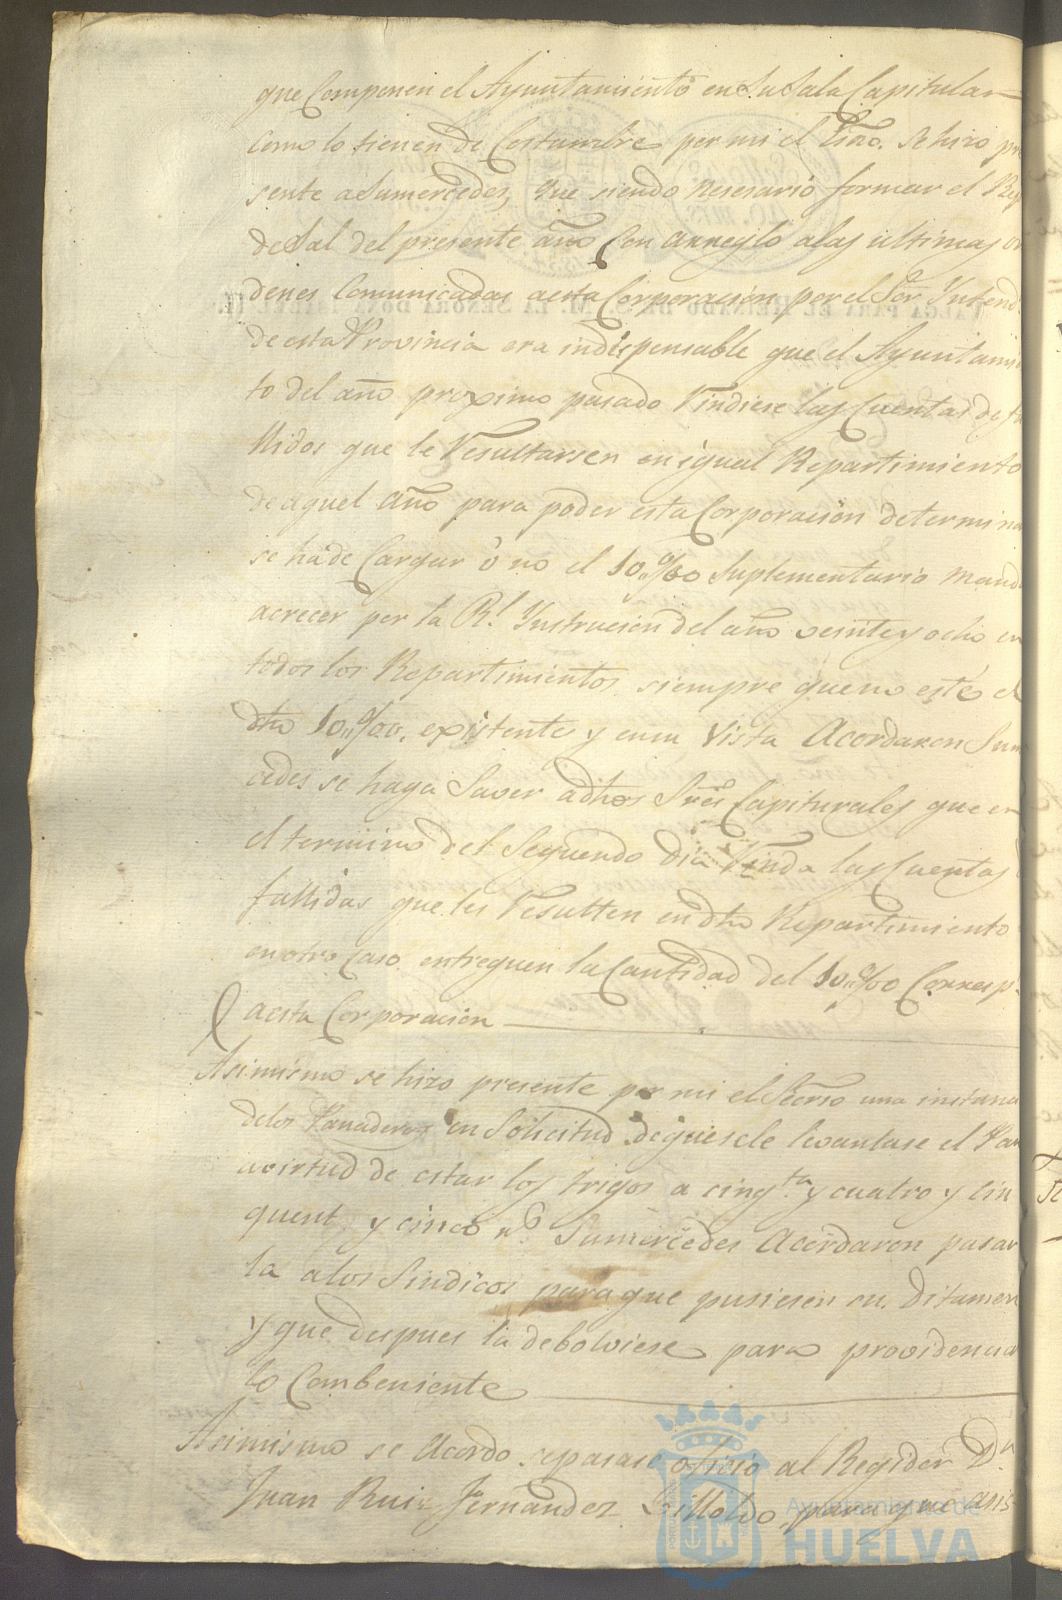 que Componen el Ayuntamiento en su Sala Capitular
Como lo tienen de Costumbre por mi el Esno. Se hizo pre
sente a Sumercedes, que siendo nesesario formar el Rep
de Sal del presente año Con arreglo alas ultimas or
denes Comunicadas aesta Corporacion por el Sor. Yntend
de esta Provincia era indispensable que el Ayuntamie
to del año proximo pasado Rindiese las Cuentas de fa
llidos que le Resultarsen en igual Repartimiento
de aquel año para poder esta Corporacion determina
se hade Cargar ó no el 10 %00 Suplementario mand
acrecer por la Rl. Ynstrucion del año veinte y ocho en
todos los Repartimientos siempre que no esté el
dho 10 %00 existente y en su Vista Acordaron Sum
cedes se haga Saver adhos Sres Capiturales que en
el termino del Segundo dia Rinda las Cuentas
fallidas que les Resulten en dho Repartimiento
en otro Caso entreguen la Cantidad del 10 %00 Corresp
aesta Corporacion
Asimismo se hizo presente por mi el Secrio una instanc
delos Panaderos en Solicitud de quesele levantase el Pan
avirtud de estar los trigos a cinqta y cuatro y cin
quent y cinco rs. Sumercedes Acordaron pasar
la alos Sindicos para que pusiesen su Ditamen
y que despues la debolviese para providencia
lo Combeniente
Asimismo se Acordo sepasase oficio al Regidor Dn
Juan Ruiz Fernandez para que asis
Ayuntamiento de
HUELVA
VALGA PARA EL REINADO DE S. M. LA SEÑORA DOÑA ISABEL II.